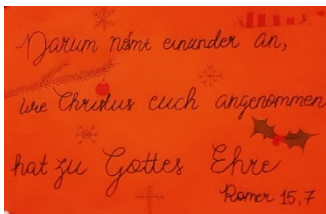 Darum nehmt einander an,
wie Christus euch angenommen
hat zu Gottes Ehre
Römer 15,7